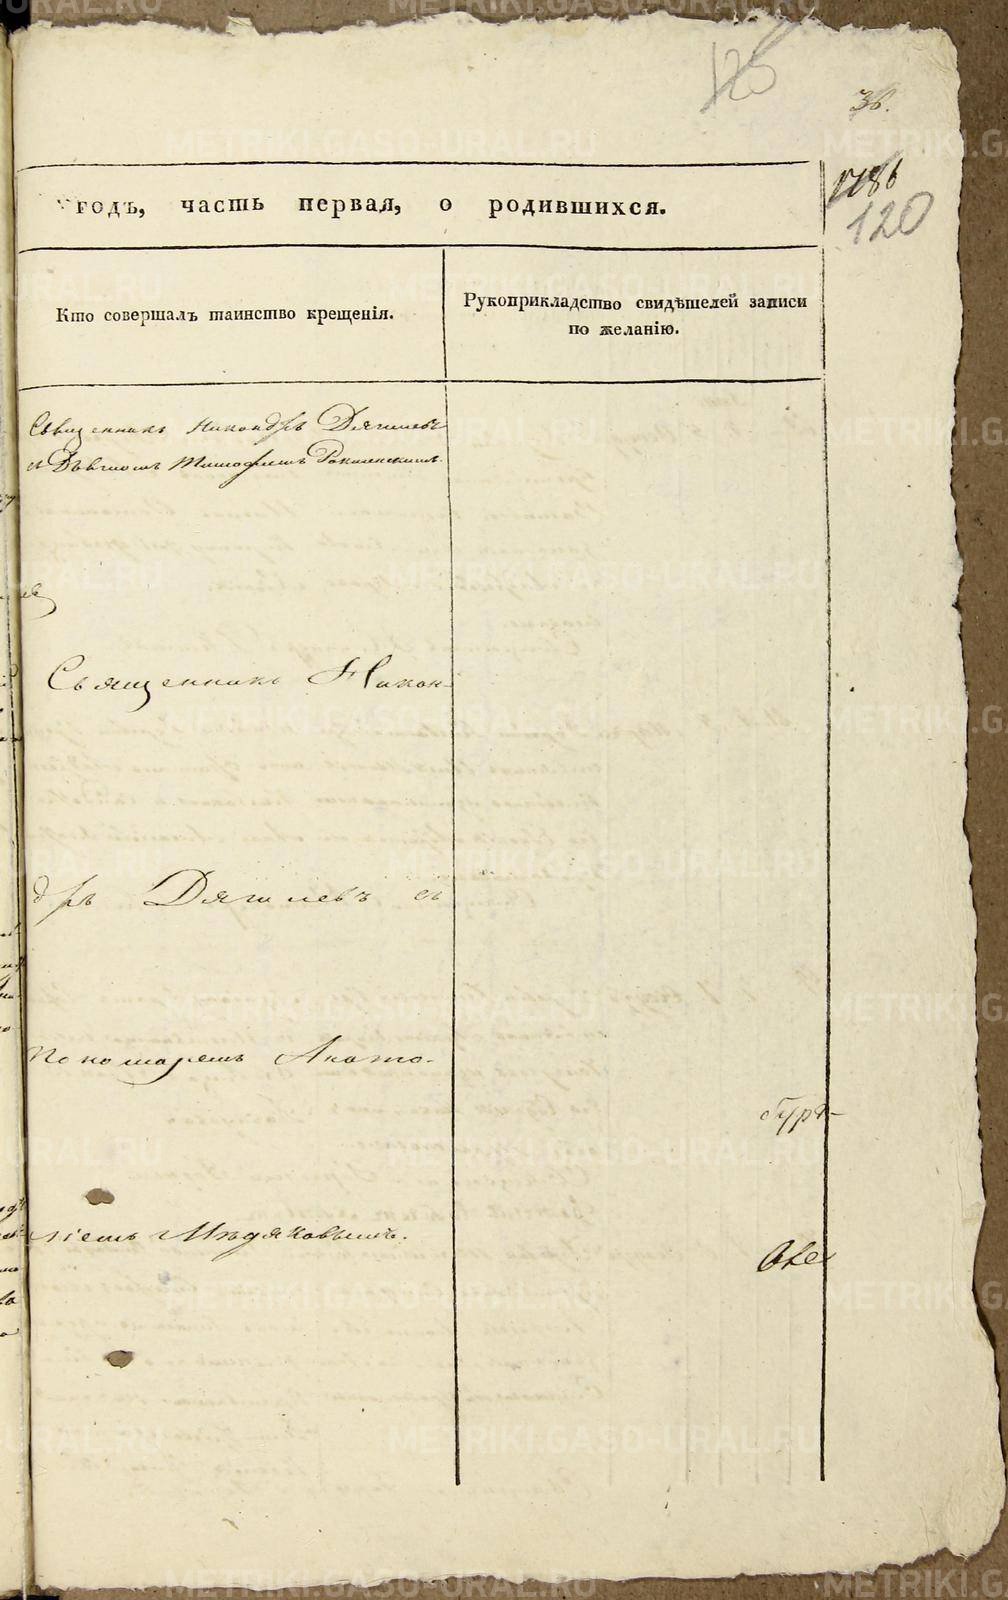 125
36.
1186
120
годъ, часть первая, о родившихся.
Кто совершалъ таинство крещенія.
Рукоприкладство свидѣтелей записи
по желанію.
Священникъ Никандръ Дягилевъ
съ Дьячкомъ Тимофеемъ
Священникъ Никан-
дръ Дягилевъ съ
Пономаремъ Анато-
ліемъ Мѣдяковымъ.
METRIKI.GASO-URAL.RU